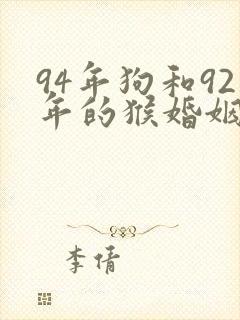 94年狗和92
年的猴婚姻
李倩